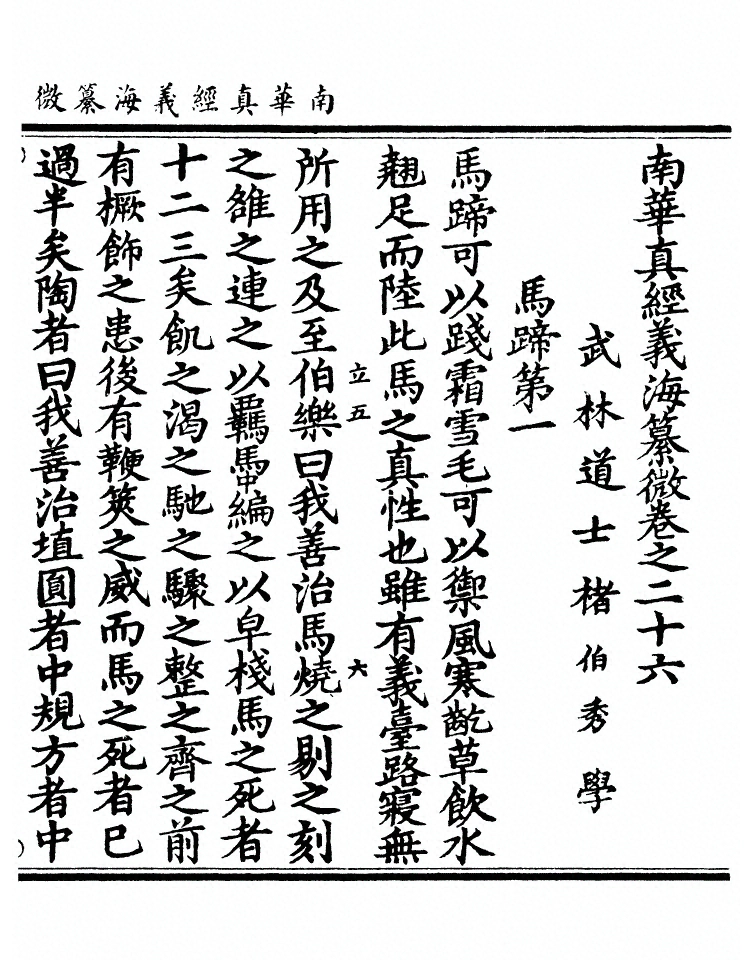 南華真經義海纂微
南華真經義海纂微卷之二十六
武林道士褚伯秀學
馬蹄第一
馬蹄可以踐霜雪毛可以禦風寒齕草飲水
翹足而陸此馬之真性也雖有義臺路寢無
立五
六
所用之及至伯樂曰我善治馬燒之剔之刻
之雒之連之以羈馽編之以皁棧馬之死者
十二三矣飢之渴之馳之驟之整之齊之前
有橛飾之患後有鞭筴之威而馬之死者已
過半矣陶者曰我善治埴圓者中規方者中